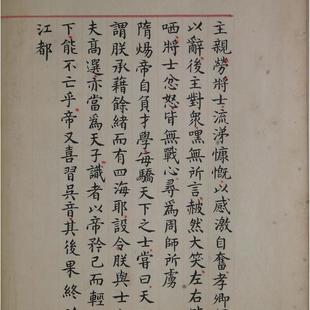 主親勞將士流涕慷慨以感激自奮孝卿
以辭後主對衆嘿無所言赧然大笑左右
哂將士忿怒皆無戰心尋為周師所虜
隋煬帝自負才學每驕天下之士嘗曰天
謂朕承藉餘緒而有四海耶設令朕與士
夫高選亦當為天子識者以帝矜己而輕
下能不亡乎帝又喜習吳音其後果終
江都